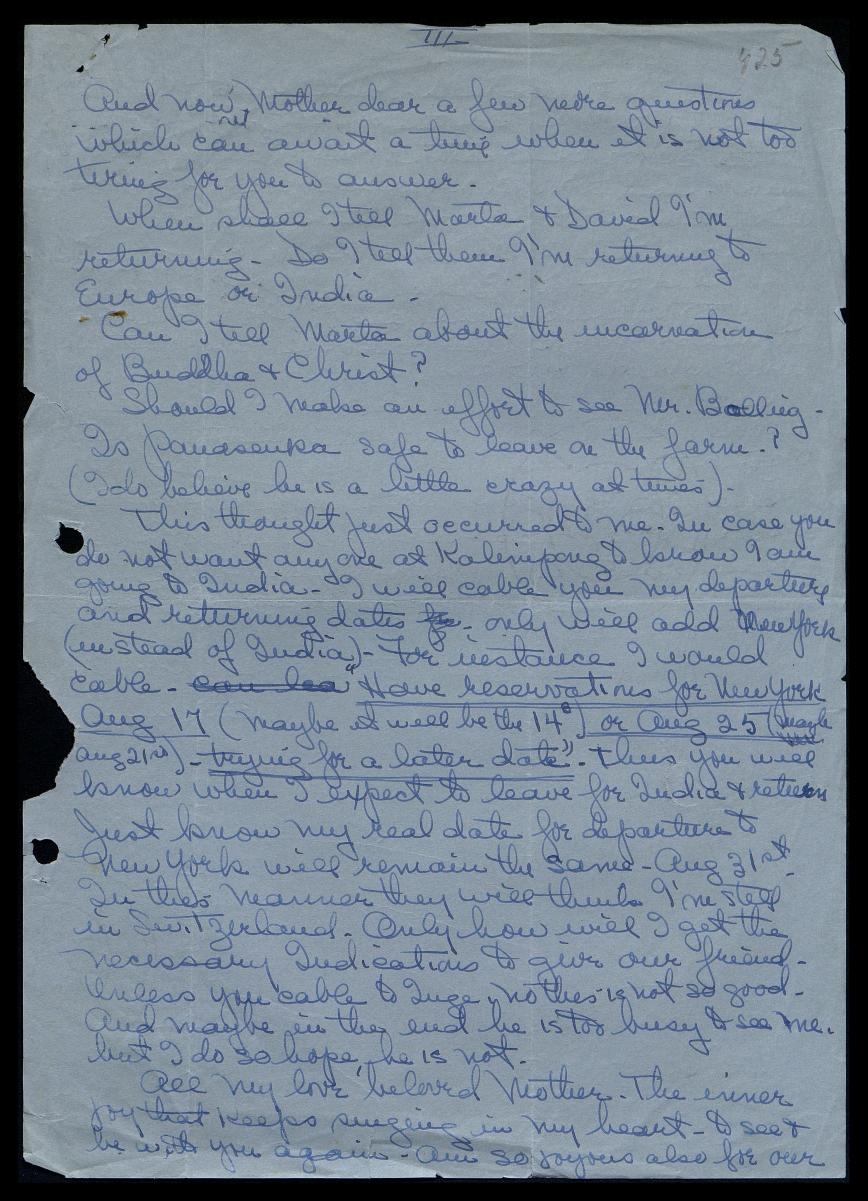 III
425
And now, Mother dear a few more questions
which can all await a time when it is not too
tiring for you to answer.
When shall I tell Marta & David I'm
returning - Do I tell them I'm returning to
Europe or India.
Can I tell Marta about the incarnation
of Buddha & Christ?
Should I make an effort to see Mr. Bolling -
Is Panasenka safe to leave on the farm.?
(I do believe he is a little crazy at times).
This thought just occurred to me. In case you
do not want anyone at Kalimpong to know I am
going to India - I will cable you my departure
and returning dates - only will add New York
(instead of India) - For instance I would
cable - "Have reservations for New York
Aug 17 (maybe it will be the 14th) or Aug 25 (maybe
aug 21st) - trying for a later date". Thus you will
know when I expect to leave for India & return
Just know my real date for departure to
New York will remain the same - Aug 31st.
In this manner they will think I'm still
in Switzerland. Only how will I get the
necessary Indications to give our friend -
Unless you cable to Inge, no this is not so good -
And maybe in the end he is too busy to see me.
but I do so hope he is not.
All my love, beloved Mother. The inner
joy that keeps singing in my heart - to see &
be with you again - Am so joyous also for our